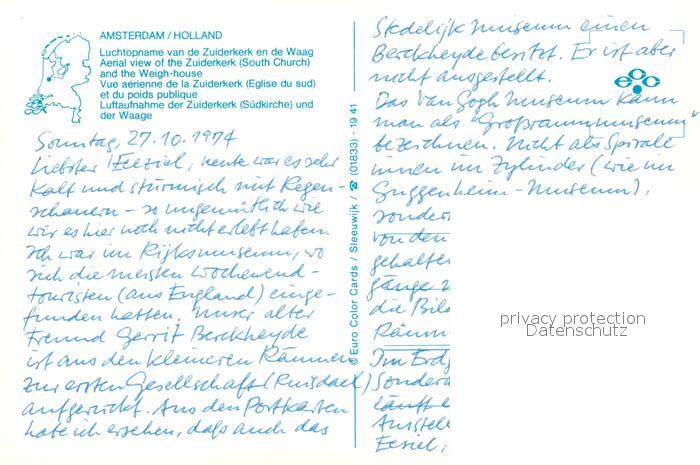 AMSTERDAM / HOLLAND
Luchtopname van de Zuiderkerk en de Waag
Aerial view of the Zuiderkerk (South Church)
and the Weigh-house
Vue aérienne de la Zuiderkerk (Eglise du sud)
et du poids publique
Luftaufnahme der Zuiderkerk (Südkirche) und
der Waage
Sonntag, 27.10.1974
Liebster Eeziel, heute war es sehr
kalt und stürmisch mit Regen-
schauern – so ungemütlich wie
wir es hier noch nicht erlebt haben.
Ich war im Rijksmuseum, wo
sich die meisten Wochenend-
touristen (aus England) einge-
funden hatten. Unser alter
Freund Gerrit Berckheyde
ist aus den kleineren Räumen
zur ersten Gesellschaft (Ruisdael)
aufgerückt. Aus den Postkarten
habe ich ersehen, daß auch das
© Euro Color Cards / Sleeuwijk / ☎ (01833) - 19 41
Stedelijk Museum einen
Berckheyde besitzt. Er ist aber
nicht ausgestellt.
ecc
Das Van Gogh Museum kann
man als "Großraummuseum"
bezeichnen. Nicht als Spirale
innen im Zylinder (wie im
Guggenheim-Museum),
sonder
von den
gehalte
gänge
die Bil
Räum
Im Erdg
Sonder
läuft e
Ausstell
Eesiel,
privacy protection
Datenschutz